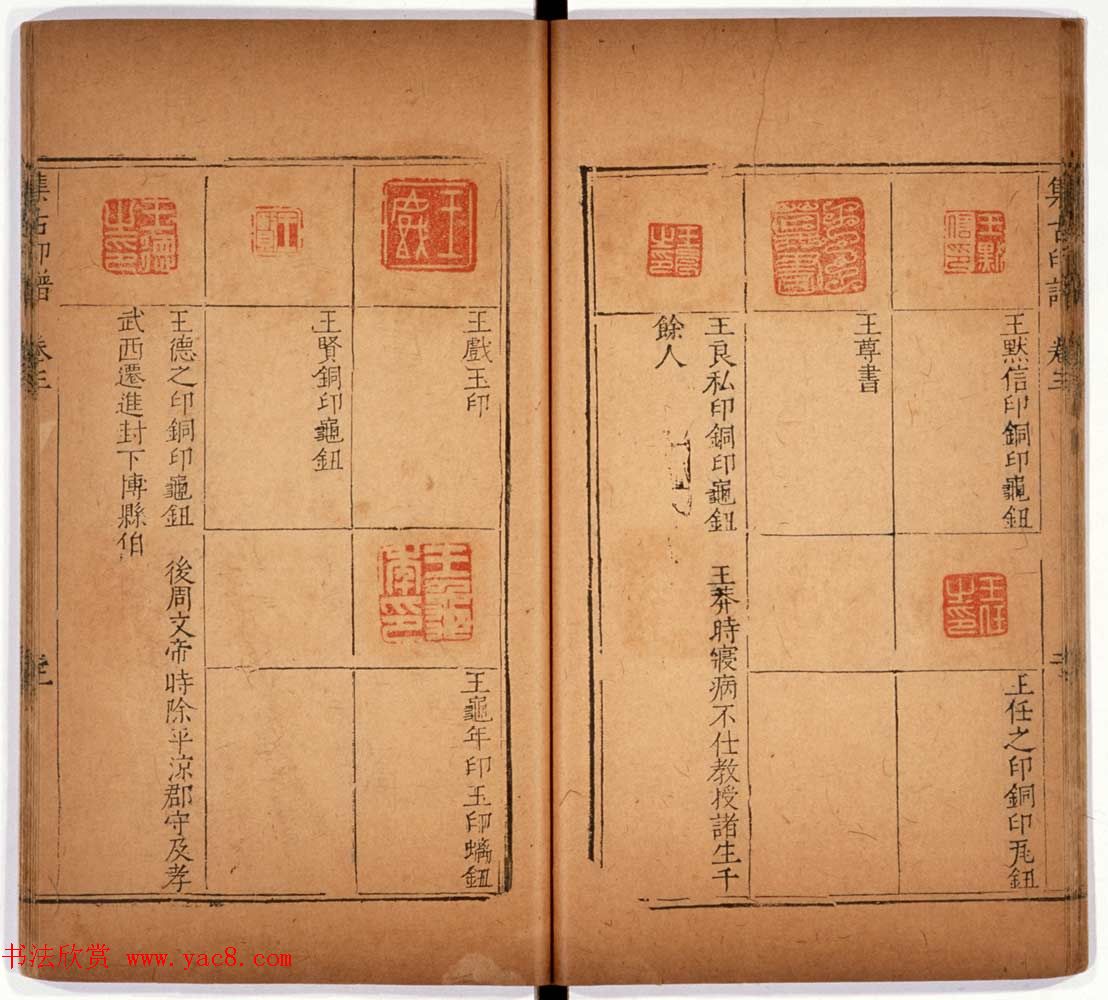 集古印譜 卷三
王默信印
王默信印銅印龜鈕
王任之印
王任之印銅印瓦鈕
王尊書
王良私印銅印龜鈕 王莽時寢病不仕教授諸生千
餘人
王戲
王戲玉印
王龜年印玉印螭鈕
王賢
王賢銅印龜鈕
王德之印
王德之印銅印龜鈕 後周文帝時除平涼郡守及孝
武西遷進封下博縣伯
集古印譜 卷三
书法欣赏 www.yac8.com